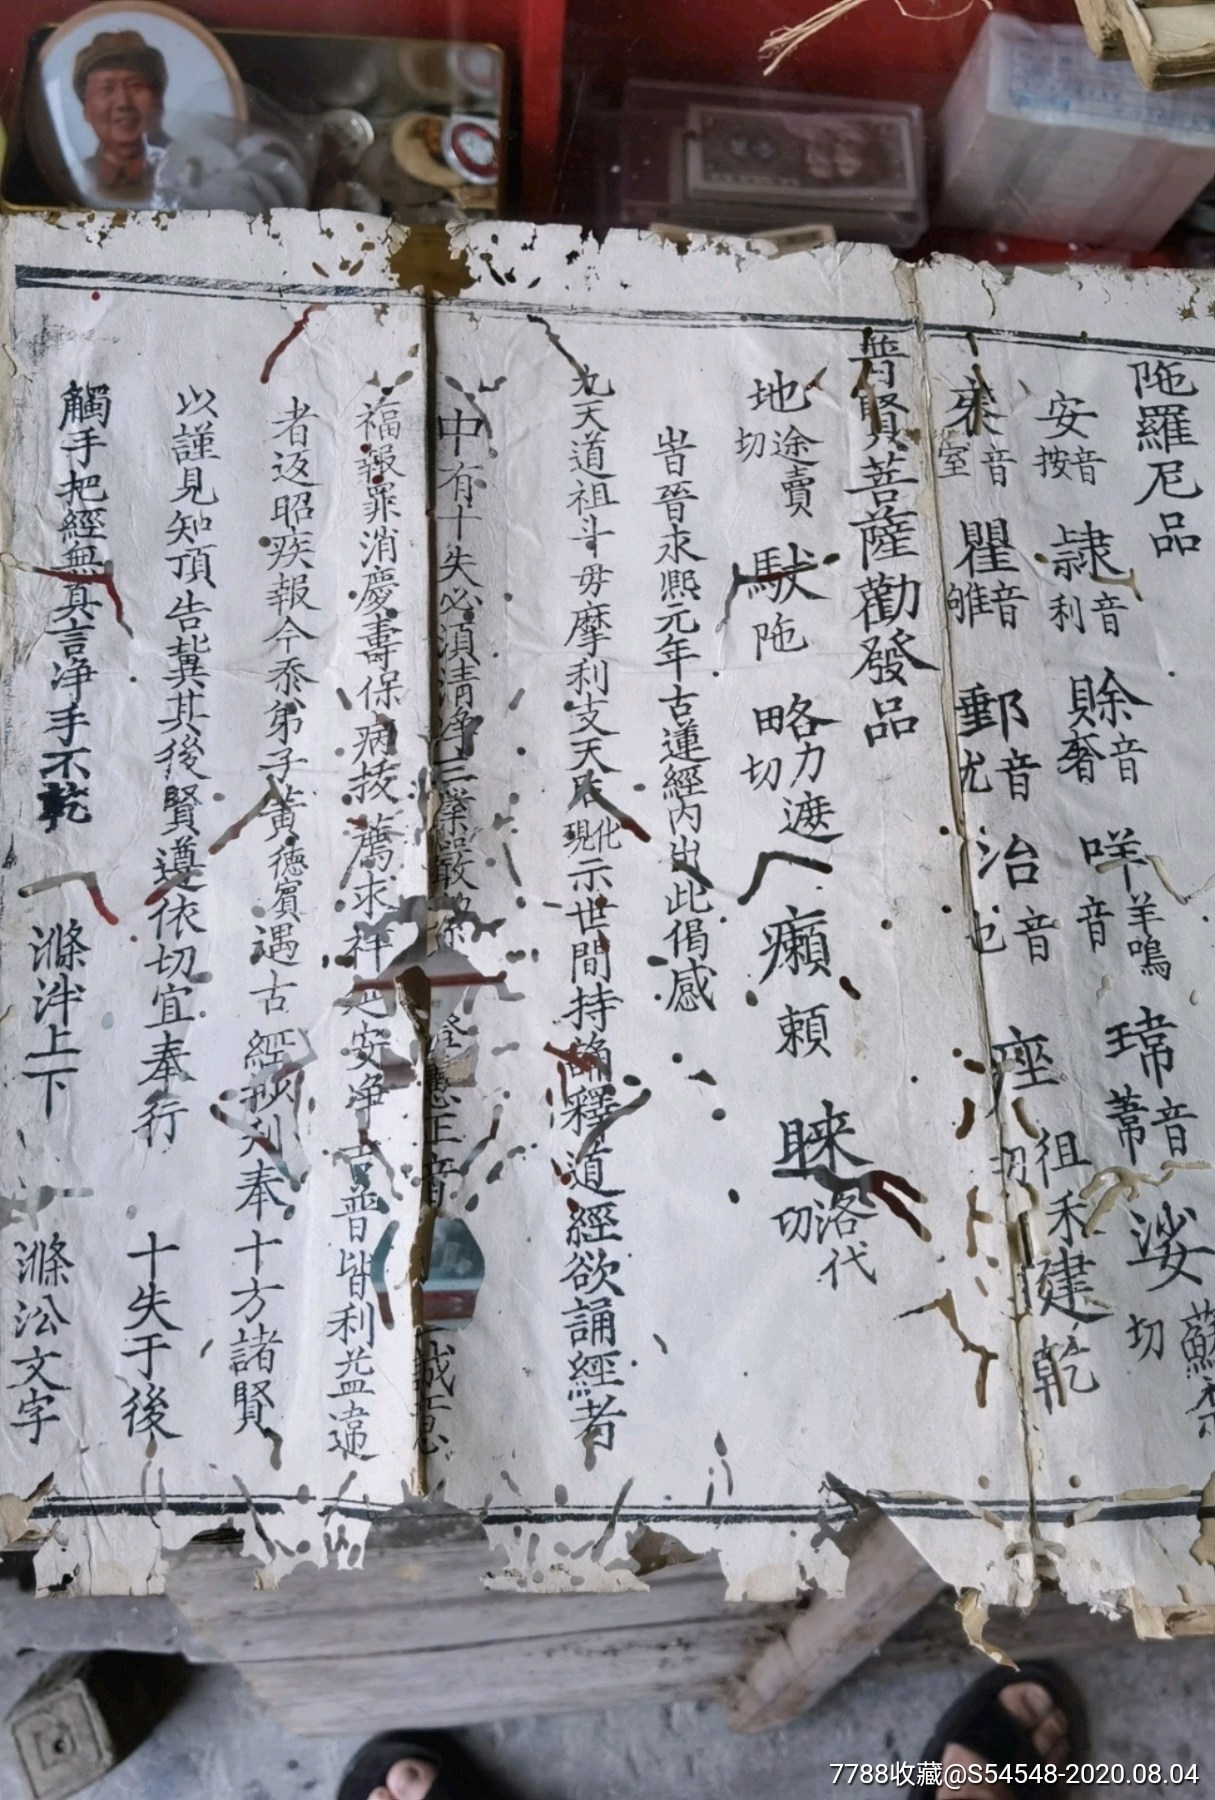 陁羅尼品
安 按音 隷 利音 賒 奢音 哶 羊鳴音 瑋 葦音 娑 蘇 切
音 瞿 雊音 郵 尤音 冶 也音 座 徂禾切 建 乾
普賢菩薩勸發品
地 途賣切 馱 陁 略 力遮切 癩 頼 睞 洛代切
旹晉永熙元年古蓮經內出此偈感
九天道祖斗毋摩利支天 現化示世間持誦釋道經欲誦經者
中有十失必須清浄三業 正 誠
福報罪消慶壽保病 薦求祥 安浄 普皆利益違
者返昭疾報今忝弟子黃德賓遇古經 列奉十方諸賢
以謹見知頂告兾其後賢遵依切宜奉行 十失于後
觸手把經無真言浄手不乾 滌泮上下 滌㳂文字
7788收藏@S54548-2020.08.04